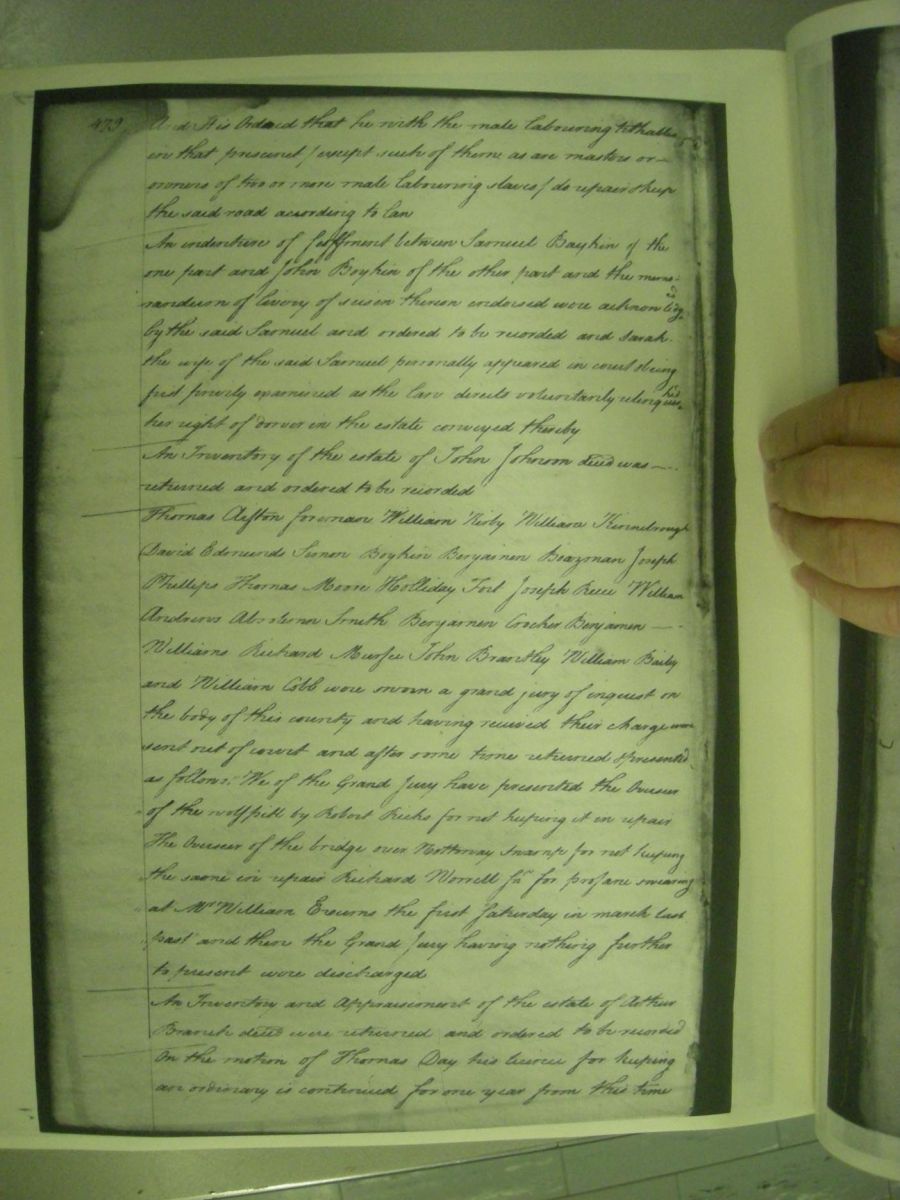 479. And It is Ordered that he with the male labouring tithables
in that precinct /except such of them as are masters or
owners of two or more male labouring slaves/ do repair & keep
the said road according to law
An indenture of feoffment between Samuel Boykin of the
one part and John Boykin of the other part and the memo-
randum of livery of seisin thereon endorsed were acknowledged
by the said Samuel and ordered to be recorded and Sarah
the wife of the said Samuel personally appeared in court & being
first privily examined as the law directs voluntarily relinquished
her right of dower in the estate conveyed thereby
An Inventory of the estate of John Johnson deced was
returned and ordered to be recorded
Thomas foreman William Kirby William Kinnebrough
David Edmunds Simon Boykin Benjamen Joseph
Phillips Thomas Moore Holliday Fort Joseph William
Andrews Absolem Smith Benjamen Crocker Benjamen
Williams Richard Murfee John Brantley William Baily
and William Cobb were sworn a grand jury of inquest on
the body of this county and having received their charge were
sent out of court and after some time returned & presented
as follows. We of the Grand Jury have presented the Overseer
of the wolfpitt by Robert Ricks for not keeping it in repair
The Overseer of the bridge over Nottoway swamp for not keeping
the same in repair Richard Worrell Jr for profane swearing
at Mr William the first saturday in march last
past and then the Grand Jury having nothing further
to present were discharged
An Inventory and Appraisement of the estate of Arthur
Branch deced were returned and ordered to be recorded
On the motion of Thomas Day his licence for keeping
an ordinary is continued for one year from this time